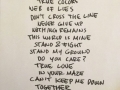 TRUE COLORS
WEB OF LIES
DON'T CROSS THE LINE
NEVER GIVE UP
NOTHING REMAINS
THIS WHERE IS MINE
STAND & FIGHT
STAND MY GROUND
DO YOU CARE?
TRUE LOVE
IN YOUR MAZE
CAN'T KEEP ME DOWN
TOGETHER